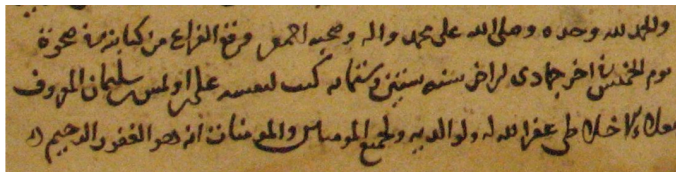 والحمد لله وحده وصلى الله على محمد واله وصحبه اجمعين وقع الفراغ من كتابته ضحوة
يوم الخميس اخر جمادى الاخر سنه ستين وستمايه كتب لنفسه على بن سليمان المعروف
غفر الله له ولوالديه ولجميع المومنين والمومنات انه هو الغفور الرحيم